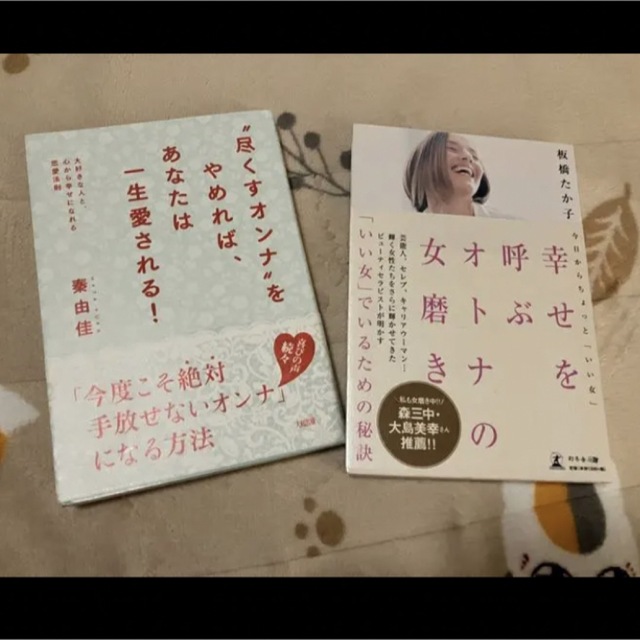 “尽くすオンナ”を
やめれば、
あなたは
一生愛される!
大好きな人と、
心から幸せになれる
恋愛法則
秦由佳
喜びの声
続々
「今度こそ絶対
手放せないオンナ」
になる方法
大和出版
板橋たか子
今日からちょっと「いい女」
幸せを
呼ぶ
オトナの
女磨き
芸能人、セレブ、キャリアウーマン…
輝く女性たちをさらに輝かせてきた
ビューティセラピストが明かす
「いい女」でいるための秘訣
私も女磨き中!
森三中・
大島美幸さん
推薦!!
幻冬舎